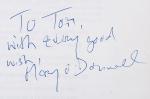 To Tom,
with every good
wish,
Mary O'Donnell